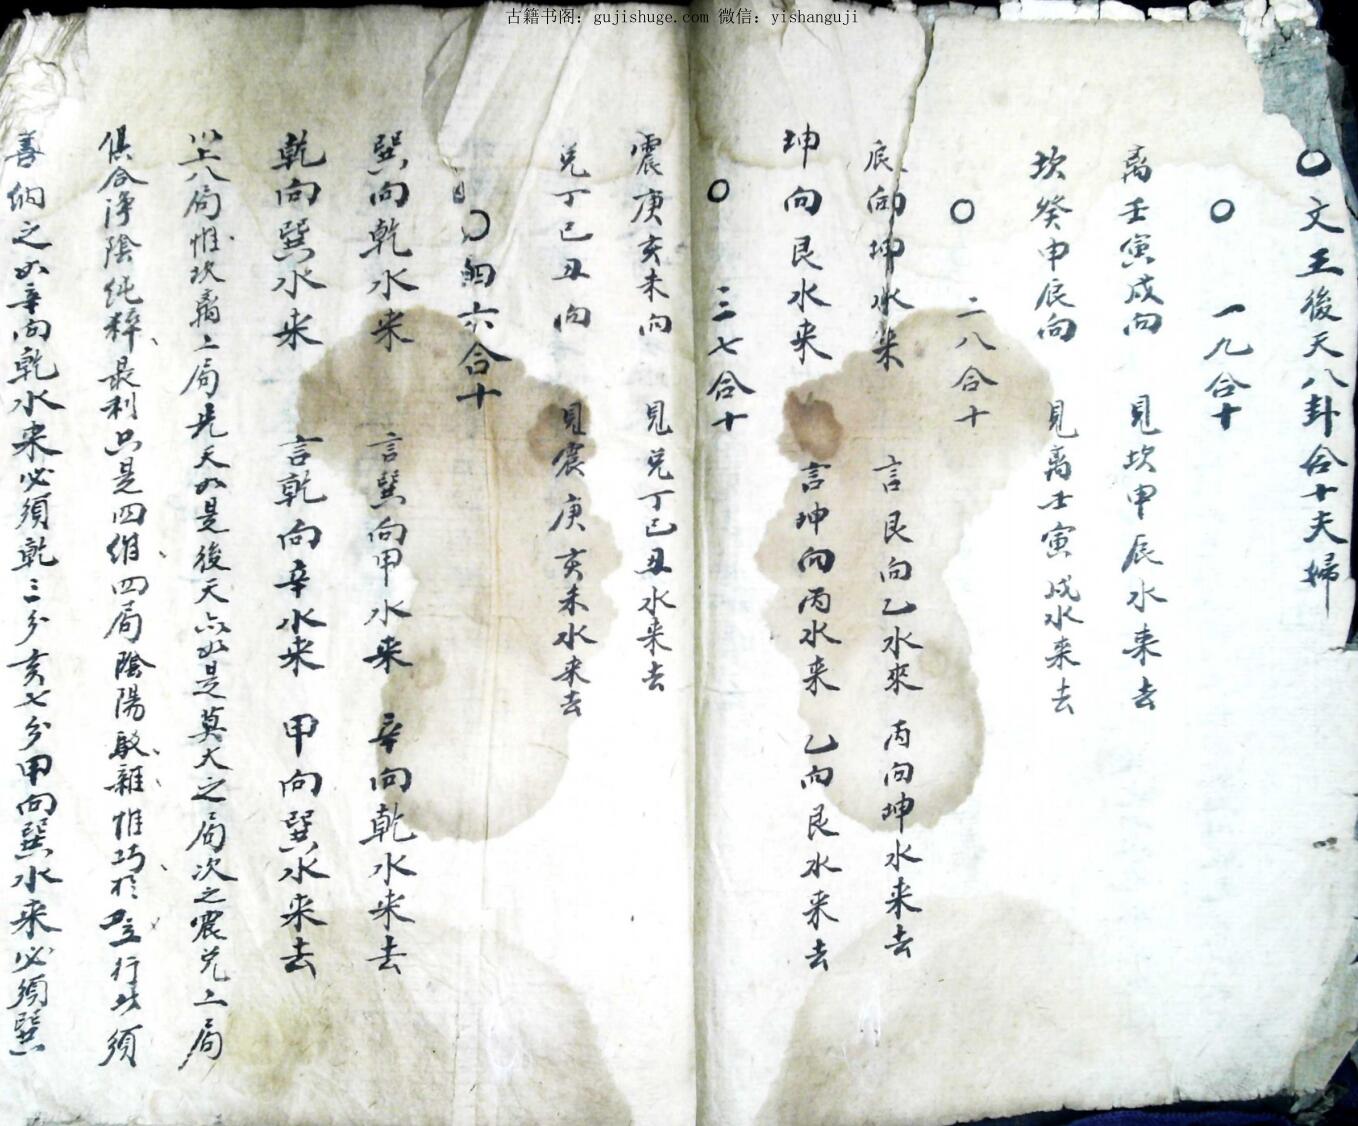 古籍书阁：gujishuge.com 微信：yishanguji
○文王後天八卦合十夫婦
○ 一九合十
离壬寅戌向 見坎申辰水来去
坎癸申辰向 見离壬寅戌水来去
○ 二八合十
艮向坤水来 言艮向乙水來 丙向坤水来去
坤向艮水来 言坤向丙水来 乙向艮水来去
○ 三七合十
震庚亥未向 見兑丁巳丑水来去
兑丁巳丑向 見震庚亥未水来去
○四六合十
巽向乾水来 言巽向甲水来 辛向乾水来去
乾向巽水来 言乾向辛水来 甲向巽水来去
以上八局惟坎离二局先天如是後天亦如是莫大之局次之震兑二局
俱合淨陰純粹最利只是四維四局陰陽駁雜惟巧於立行此须
善納之如辛向乾水来必须乾三分亥七分甲向巽水来必须巽